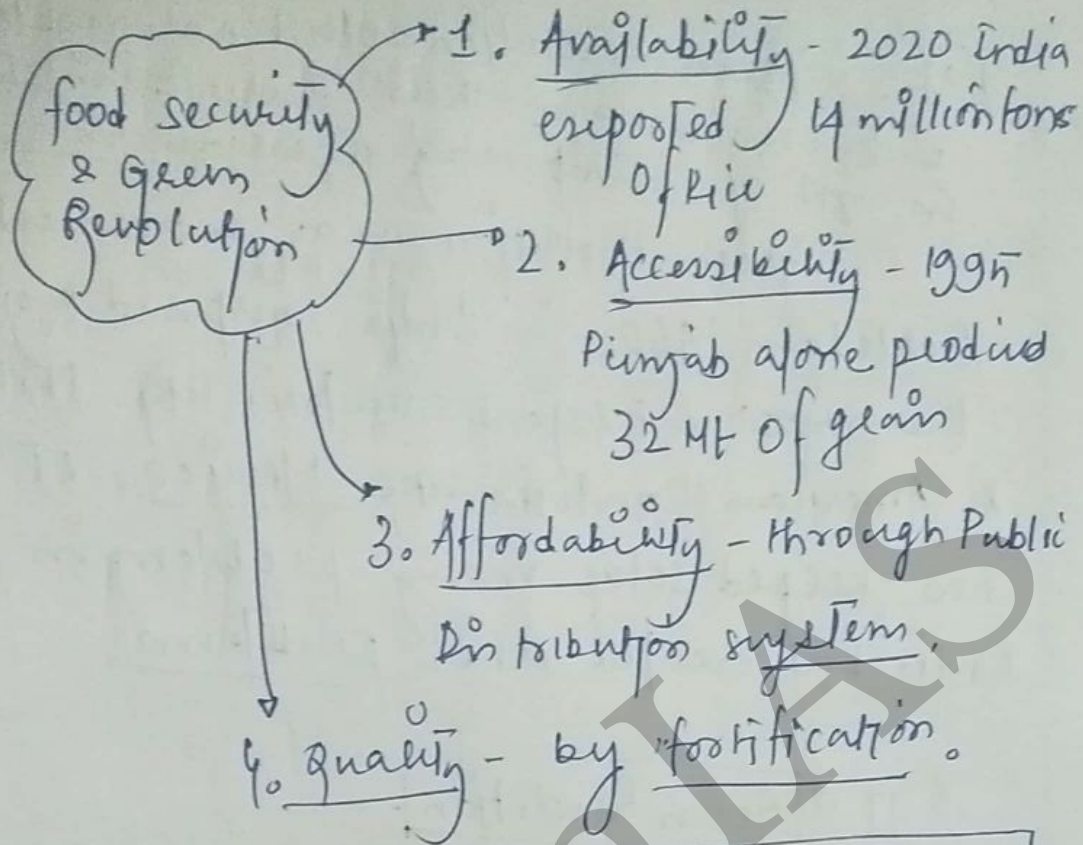 food security
& Green
Revolution
1. Availability - 2020 India
exported 14 million tons
of Rice
2. Accessibility - 1995
Punjab alone produced
32 Mt of grain
3. Affordability - through Public
Distribution system.
4. Quality - by fortification.
IAS